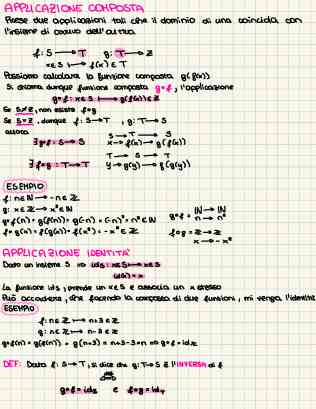 APPLICAZIONE COMPOSTA
Prese due applicazioni tali che il dominio di una coincida con
l'insieme di arrivo dell'altra
f: S → T g: T → Z
x∈S ↦ f(x) ∈ T
Possiamo calcolare la funzione composta g(f(x))
Si chiama dunque funzione composta g∘f, l'applicazione
g∘f: x∈S ↦ g(f(x))∈Z
Se S≠Z, non esiste f∘g
Se S=Z, dunque f: S→T , g: T→S
allora
S → T → S
∃ g∘f: S → S x → f(x) → g(f(x))
T → S → T
∃ f∘g : T → T y → g(y) → f(g(y))
ESEMPIO
f: n∈ℕ → -n∈Z
g: x∈Z → x²∈ℕ
g∘f(n) = g(f(n)) = g(-n) = (-n)² = n²∈ℕ g∘f = ℕ → ℕ
n → n²
f∘g(x) = f(g(x)) = f(x²) = -x²∈Z f∘g = Z → Z
x → -x²
APPLICAZIONE IDENTITA'
Dato un insieme S ⇒ idS: x∈S ↦ x∈S
idS(x) = x
La funzione idS, prende un x∈S e associa un x stesso
Può accadere, che facendo la composta di due funzioni, mi venga l'identità
ESEMPIO
f: n∈Z ↦ n+3∈Z
g: n∈Z ↦ n-3∈Z
g∘f(n) = g(f(n)) = g(n+3) = n+3-3 = n ⇒ g∘f = idZ
DEF: Data f: S→T, si dice che g: T→S È l'INVERSA di f
⇔
g∘f = idS e f∘g = idT